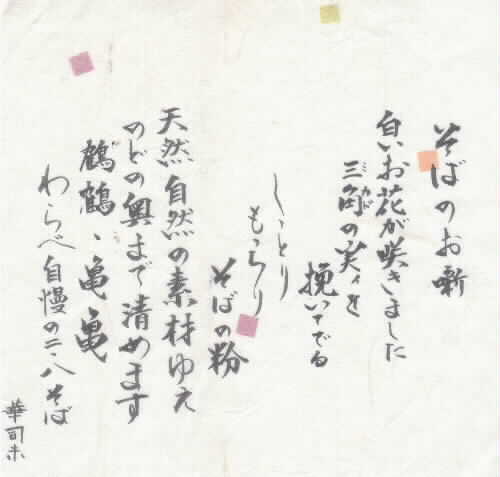 そばのお噺
白いお花が咲きました
三角の実を
挽いてでる
しっとり
もっちり
そばの粉
天然自然の素材ゆえ
のどの奥まで清めます
鶴鶴、亀亀
わらべ自慢の二八そば
華司